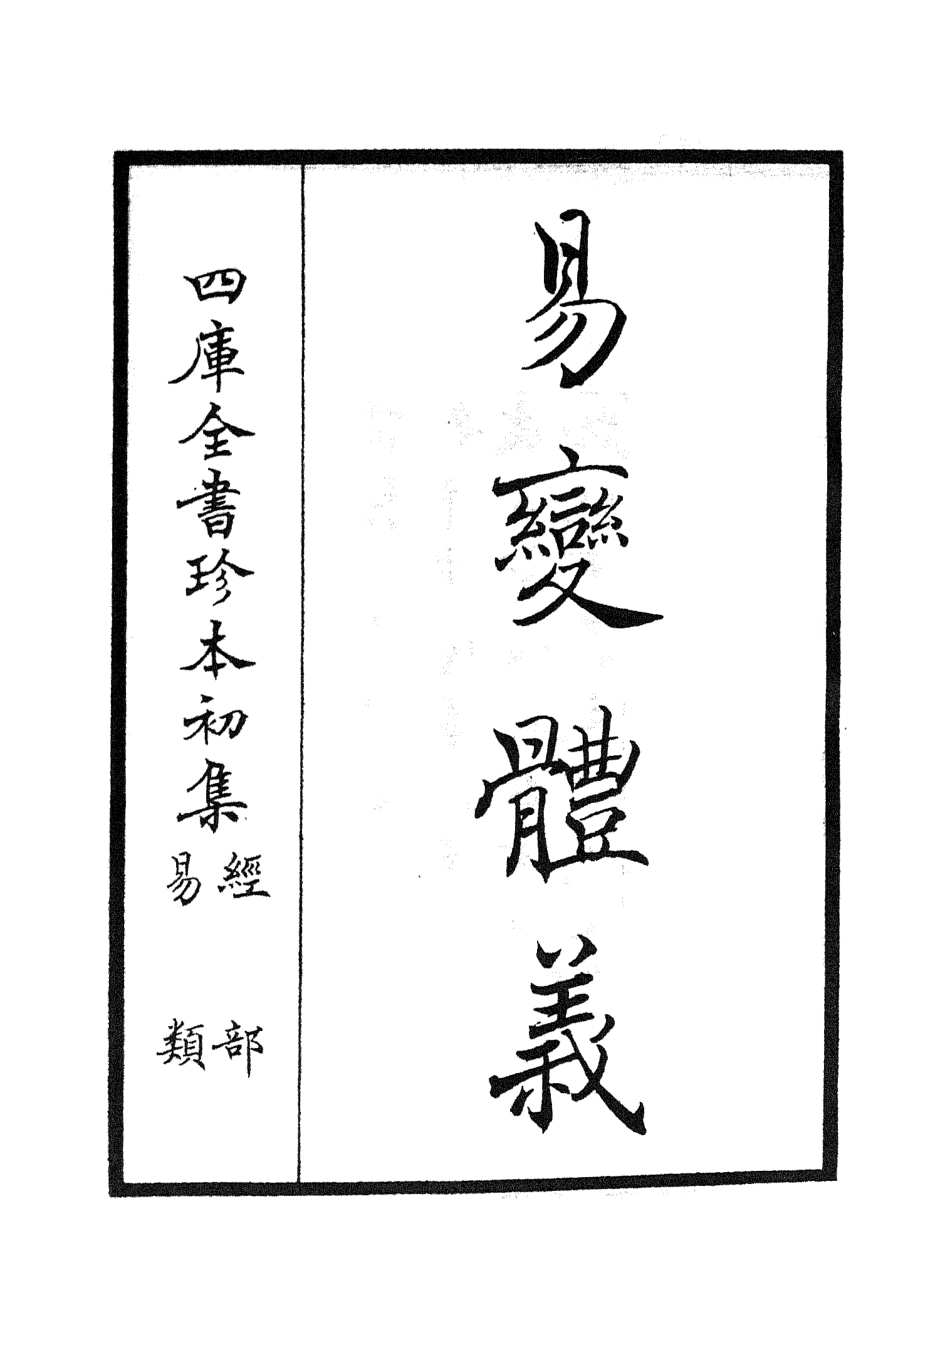 易變體義
四庫全書珍本初集
經部
易類